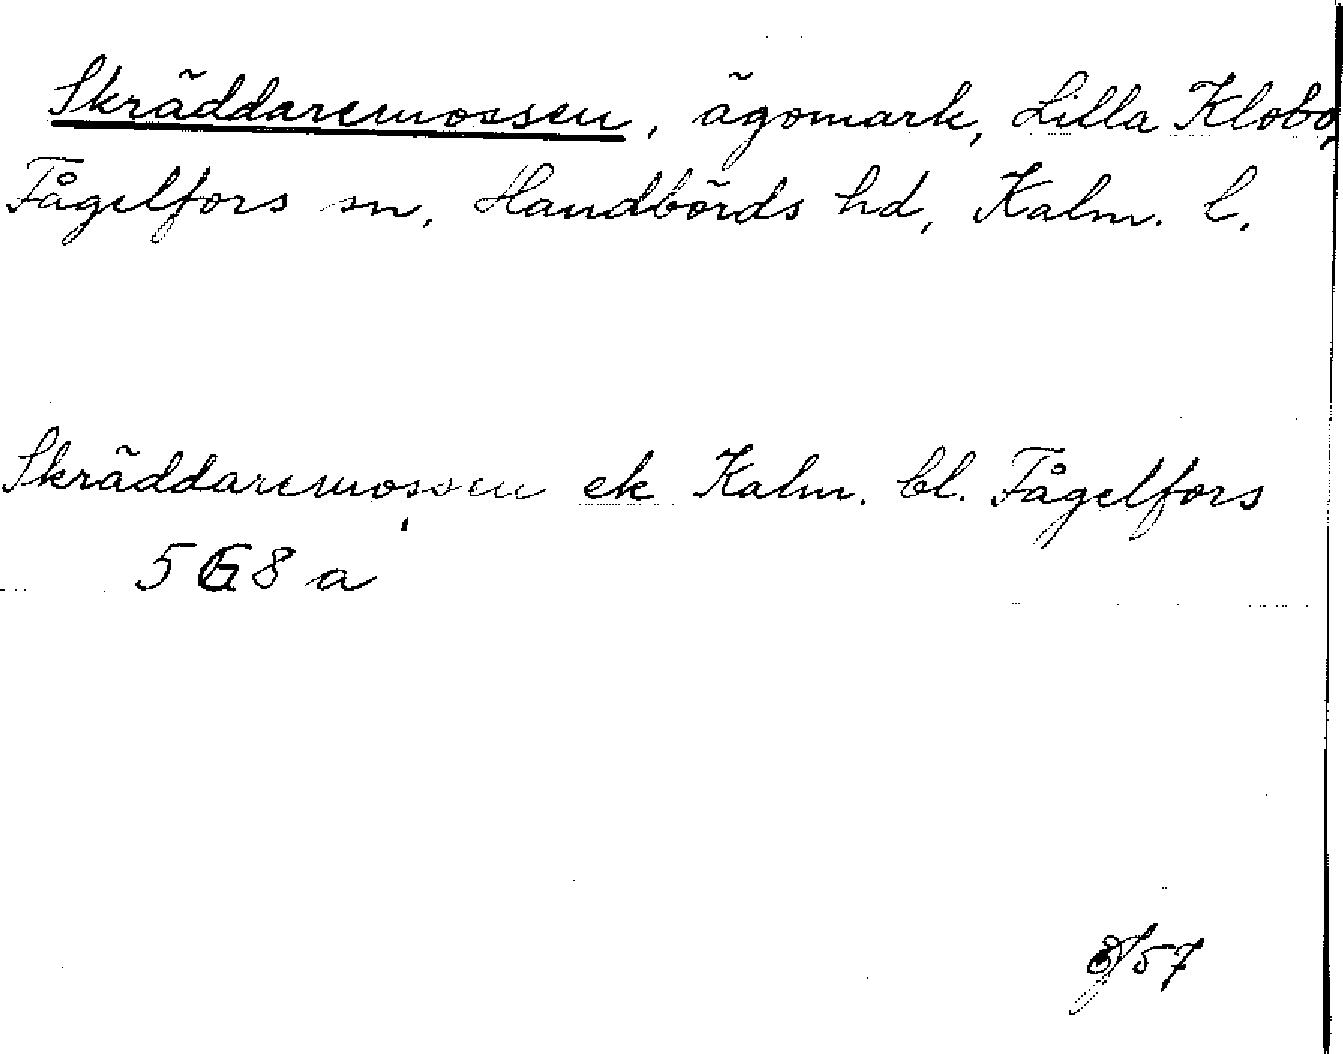 Skräddaremossen, ägomark, Lilla Klobo,
Fågelfors sn, Handbörds hd, Kalm. l.
Skräddaremossen ek Kalm. bl. Fågelfors
5G8a
8/57